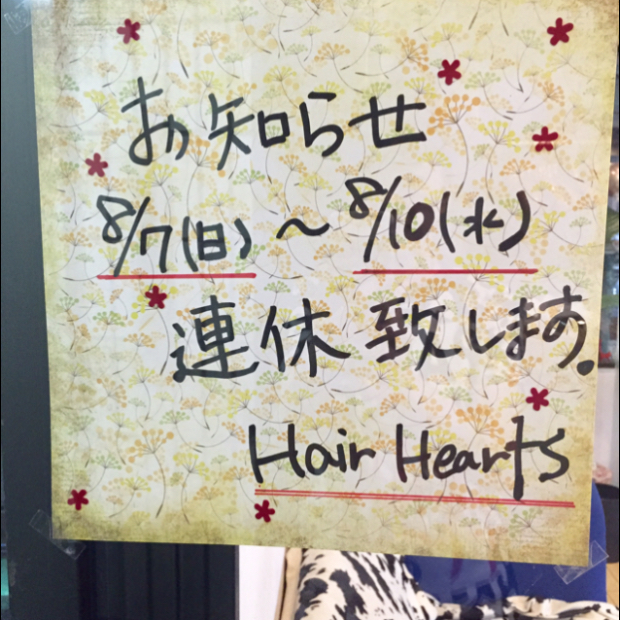 お知らせ
8/7(日)～8/10(水)
連休致します。
Hair Hearts